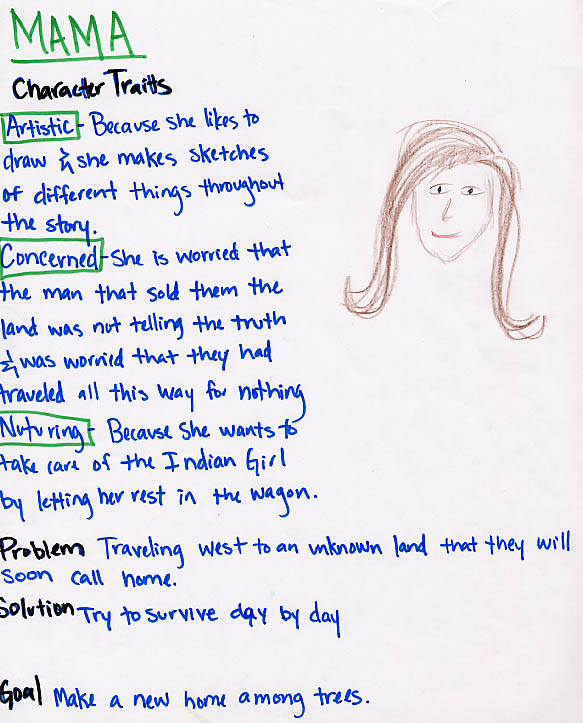 MAMA
Character Traits
Artistic - Because she likes to
draw & she makes sketches
of different things throughout
the story.
Concerned - She is worried that
the man that sold them the
land was not telling the truth
& was worried that they had
traveled all this way for nothing
Nuturing - Because she wants to
take care of the Indian Girl
by letting her rest in the wagon.
Problem Traveling west to an unknown land that they will
soon call home.
Solution Try to survive day by day
Goal Make a new home among trees.